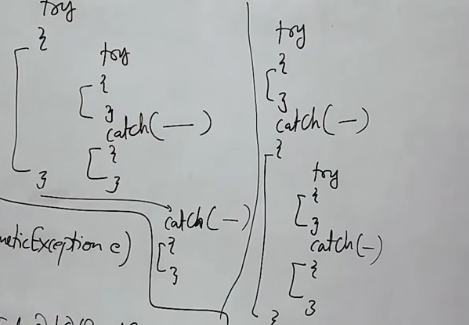 try
{
try
{
}
catch( — )
{
}
}
catch( — )
{
}
meticException e)
try
{
}
catch( — )
{
try
{
}
catch( — )
{
}
}